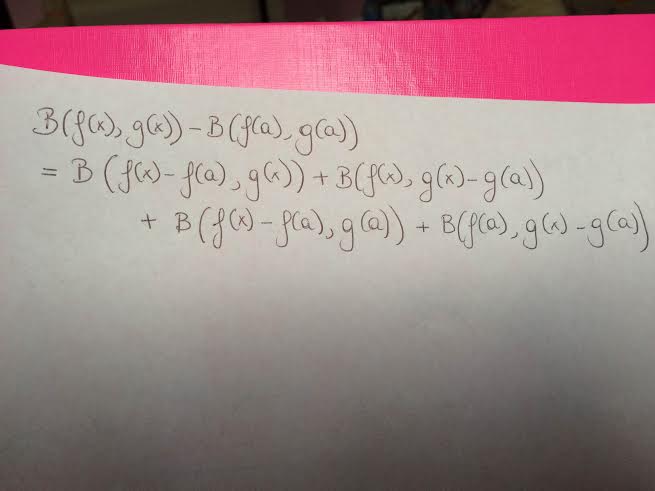 B(f(x), g(x)) - B(f(a), g(a))
= B (f(x) - f(a), g(x)) + B(f(x), g(x) - g(a))
+ B (f(x) - f(a), g(a)) + B(f(a), g(x) - g(a))